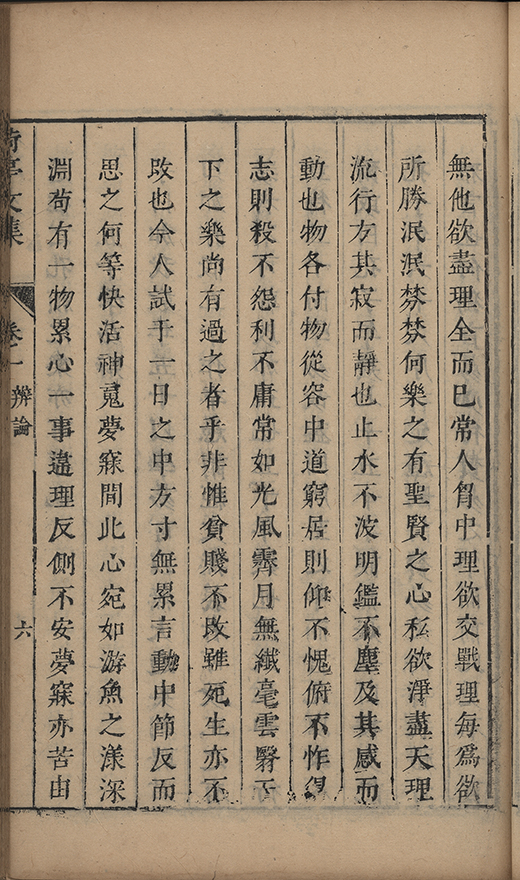 無他欲盡理全而已常人胷中理欲交戰理每爲欲
所勝泯泯棼棼何樂之有聖賢之心私欲淨盡天理
流行方其寂而靜也止水不波明鑑不塵及其感而
動也物各付物從容中道窮居則仰不愧俯不怍得
志則殺不怨利不庸常如光風霽月無纖毫雲翳天
下之樂尚有過之者乎非惟貧賤不改雖死生亦不
改也今人試于一日之中方寸無累言動中節反而
思之何等快活神䰟夢寐間此心宛如游魚之漾深
淵苟有一物累心一事違理反側不安夢寐亦苦由
亭文集
卷一 辨論
六